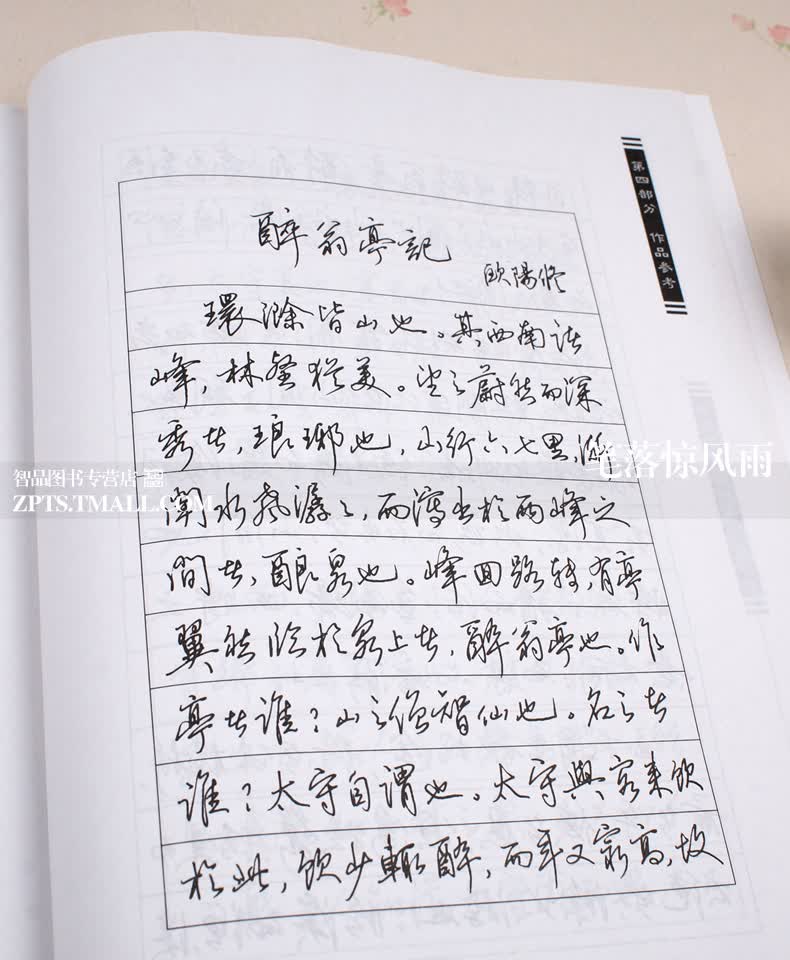 第四部分 作品参考
醉翁亭記
歐陽修
環滁皆山也。其西南諸
峰，林壑猶美。望之蔚然而深
秀者，琅琊也，山行六七里，漸
聞水聲潺潺，而瀉出於兩峰之
間者，釀泉也。峰回路轉，有亭
翼然臨於泉上者，醉翁亭也。作
亭者誰？山之僧智仙也。名之者
誰？太守自謂也。太守與客來飲
於此，飲少輒醉，而年又最高，故
智品图书专营店
ZPTS.TMALL.COM
笔落惊风雨